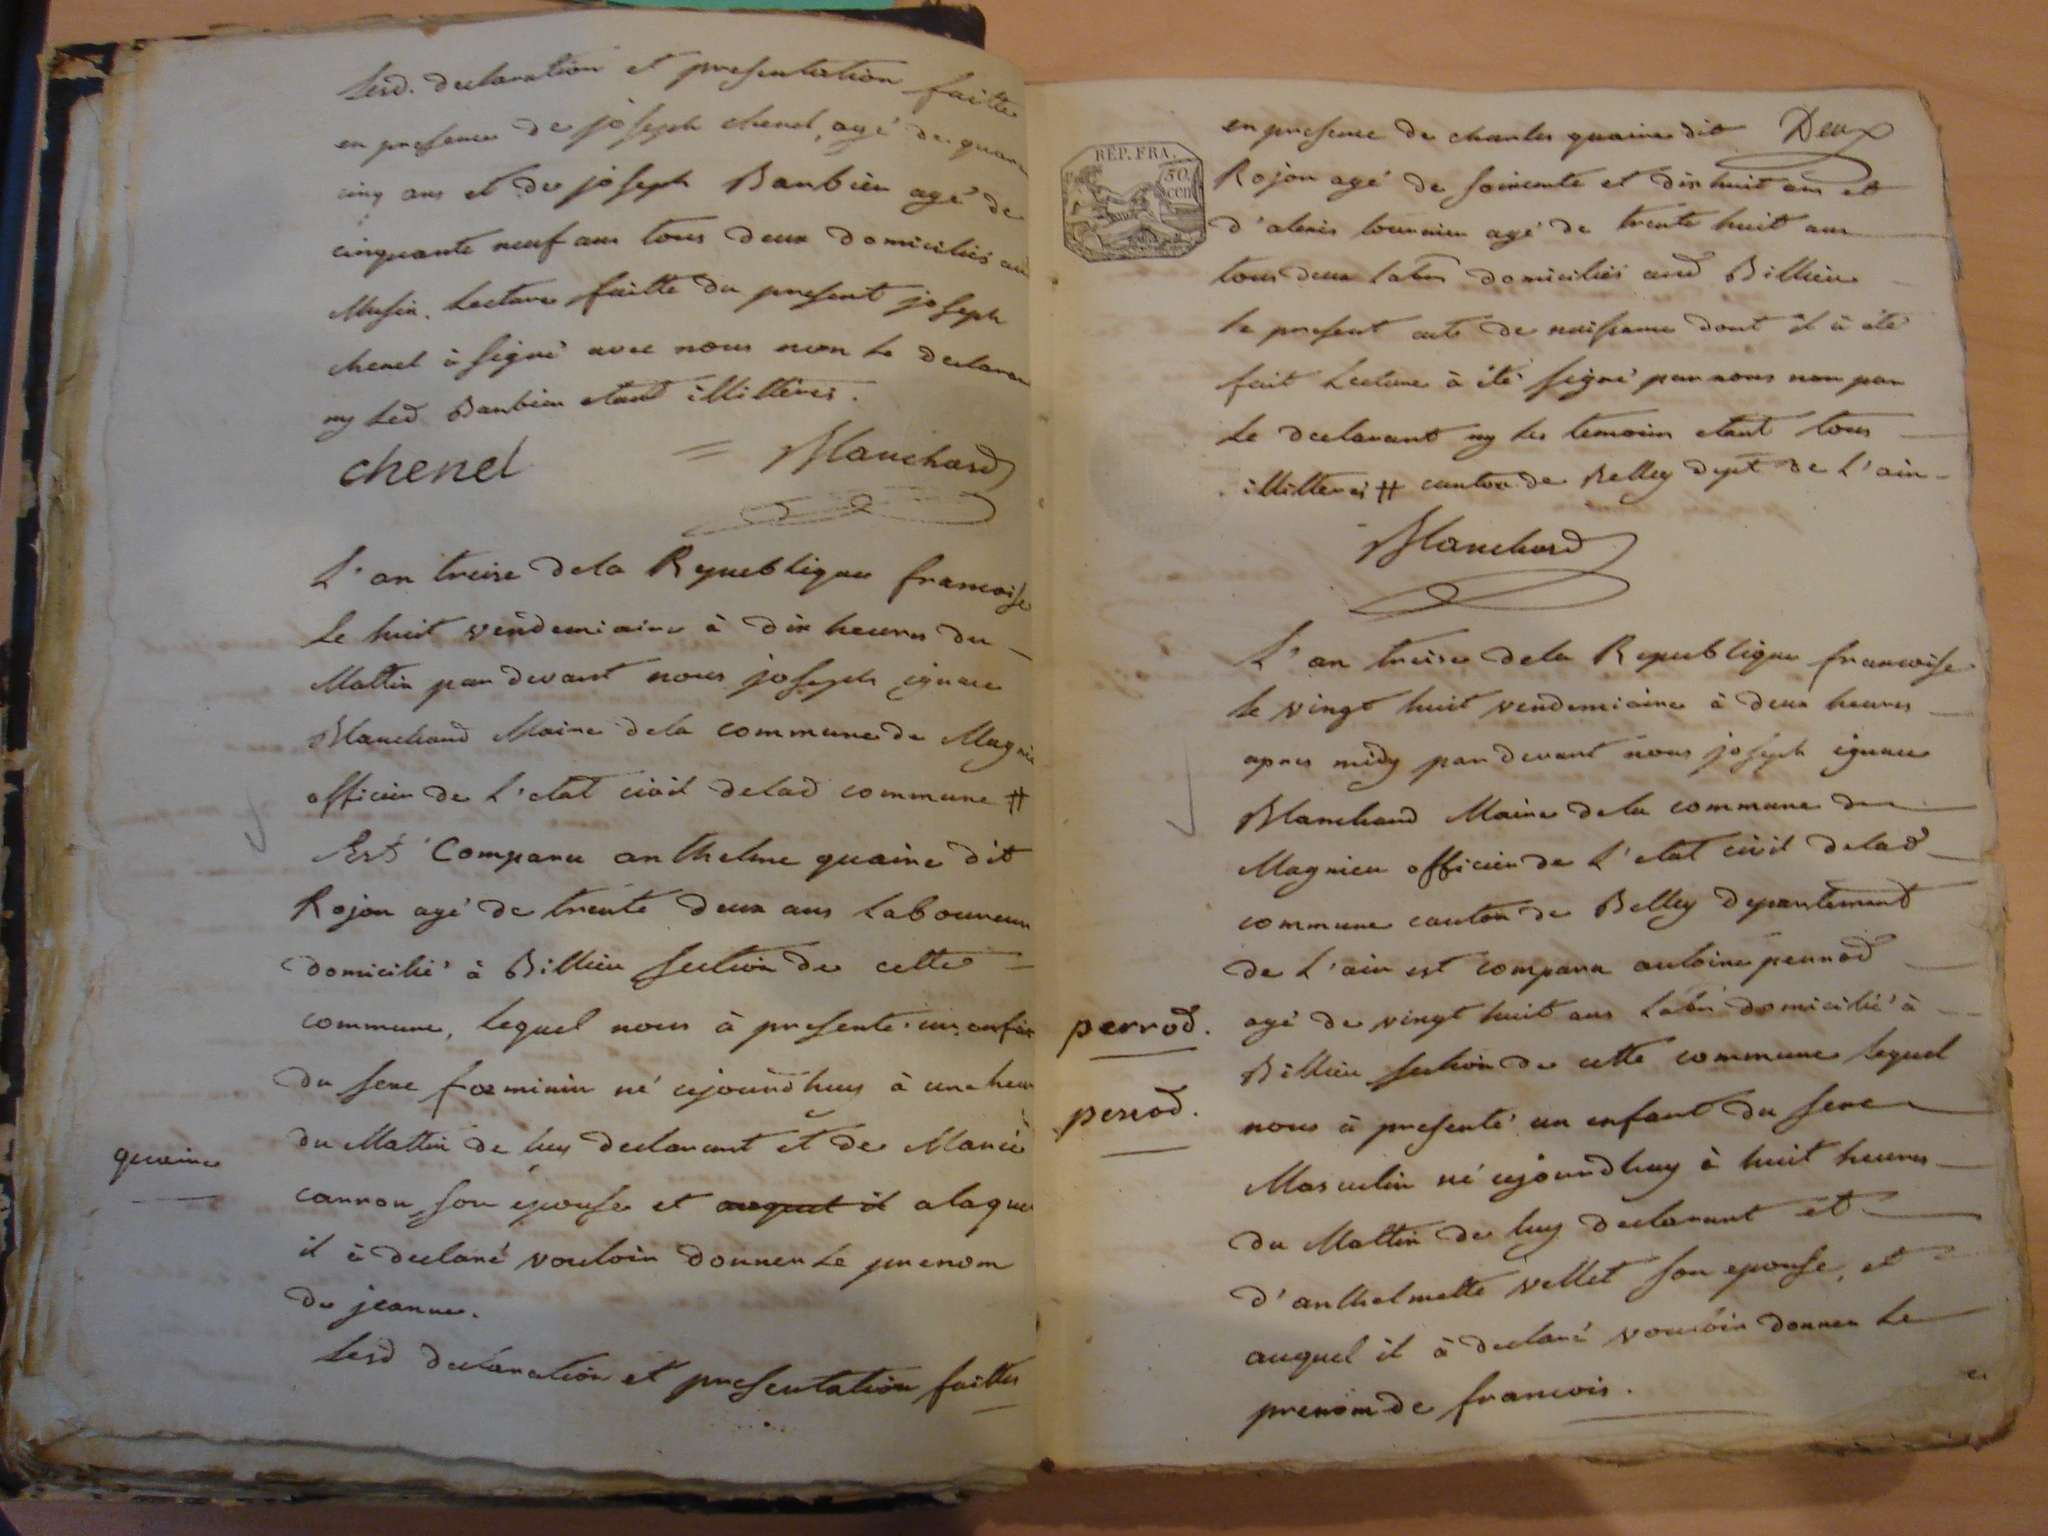 Lesd. declaration et presentation faitte
en presence de joseph chenel, agé de quara
cinq ans et de joseph Barbier agé de
cinquante neuf ans tous deux domiciliés au
Musin. Lecture faitte du present joseph
chenel à signé avec nous non le declaran
ny Led Barbier etant illitterés.
chenel = Blanchard
L'an treise dela Republique francoise
Le huit vendemiaire à dix heures du
Mattin par devant nous joseph ignace
Blanchard Maire dela commune de Magnie
officier de L'etat civil delad commune #
Est Comparu anthelme quaire dit
Rojon agé de trente deux ans Laboureur
domicilié à Billieu section de cette
commune, Lequel nous à presenté un enfan
du sexe foeminin né ajourdhuy à une heur
du Mattin de luy declarant et de Marie
quaire
carron son epouse et auquel il alaque
il à declaré vouloir donner Le prenom
de jeanne.
Lesd declaration et presentation faittes
REP. FRA.
50
cen
Deux
en presence de charles quaire dit
Rojon agé de soixante et dix huit ans et
d'alexis tournier agé de trente huit ans
tous deux labrs domiciliés aud Billieu
Le present acte de naissance dont il à été
fait Lecture à été signé par nous non par
Le declarant ny les temoins etant tous
illitterés # canton de Belley dept de L'ain
Blanchard
L'an treise dela Republique francoise
le vingt huit vendemiaire à deux heures
apres midy par devant nous joseph ignace
Blanchard Maire dela commune de
Magnieu officier de L'etat civil delad
commune canton de Belley Departement
de L'ain est comparu antoine perrod
perrod.
agé de vingt huit ans Labr domicilié à
Billieu section de cette commune Lequel
perrod.
nous à presenté un enfant du sexe
Masculin né ajourdhuy à huit heures
du Mattin de luy declarant et
d'anthelmette vellet son epouse, et
auquel il à declaré vouloir donner Le
prenom de francois.